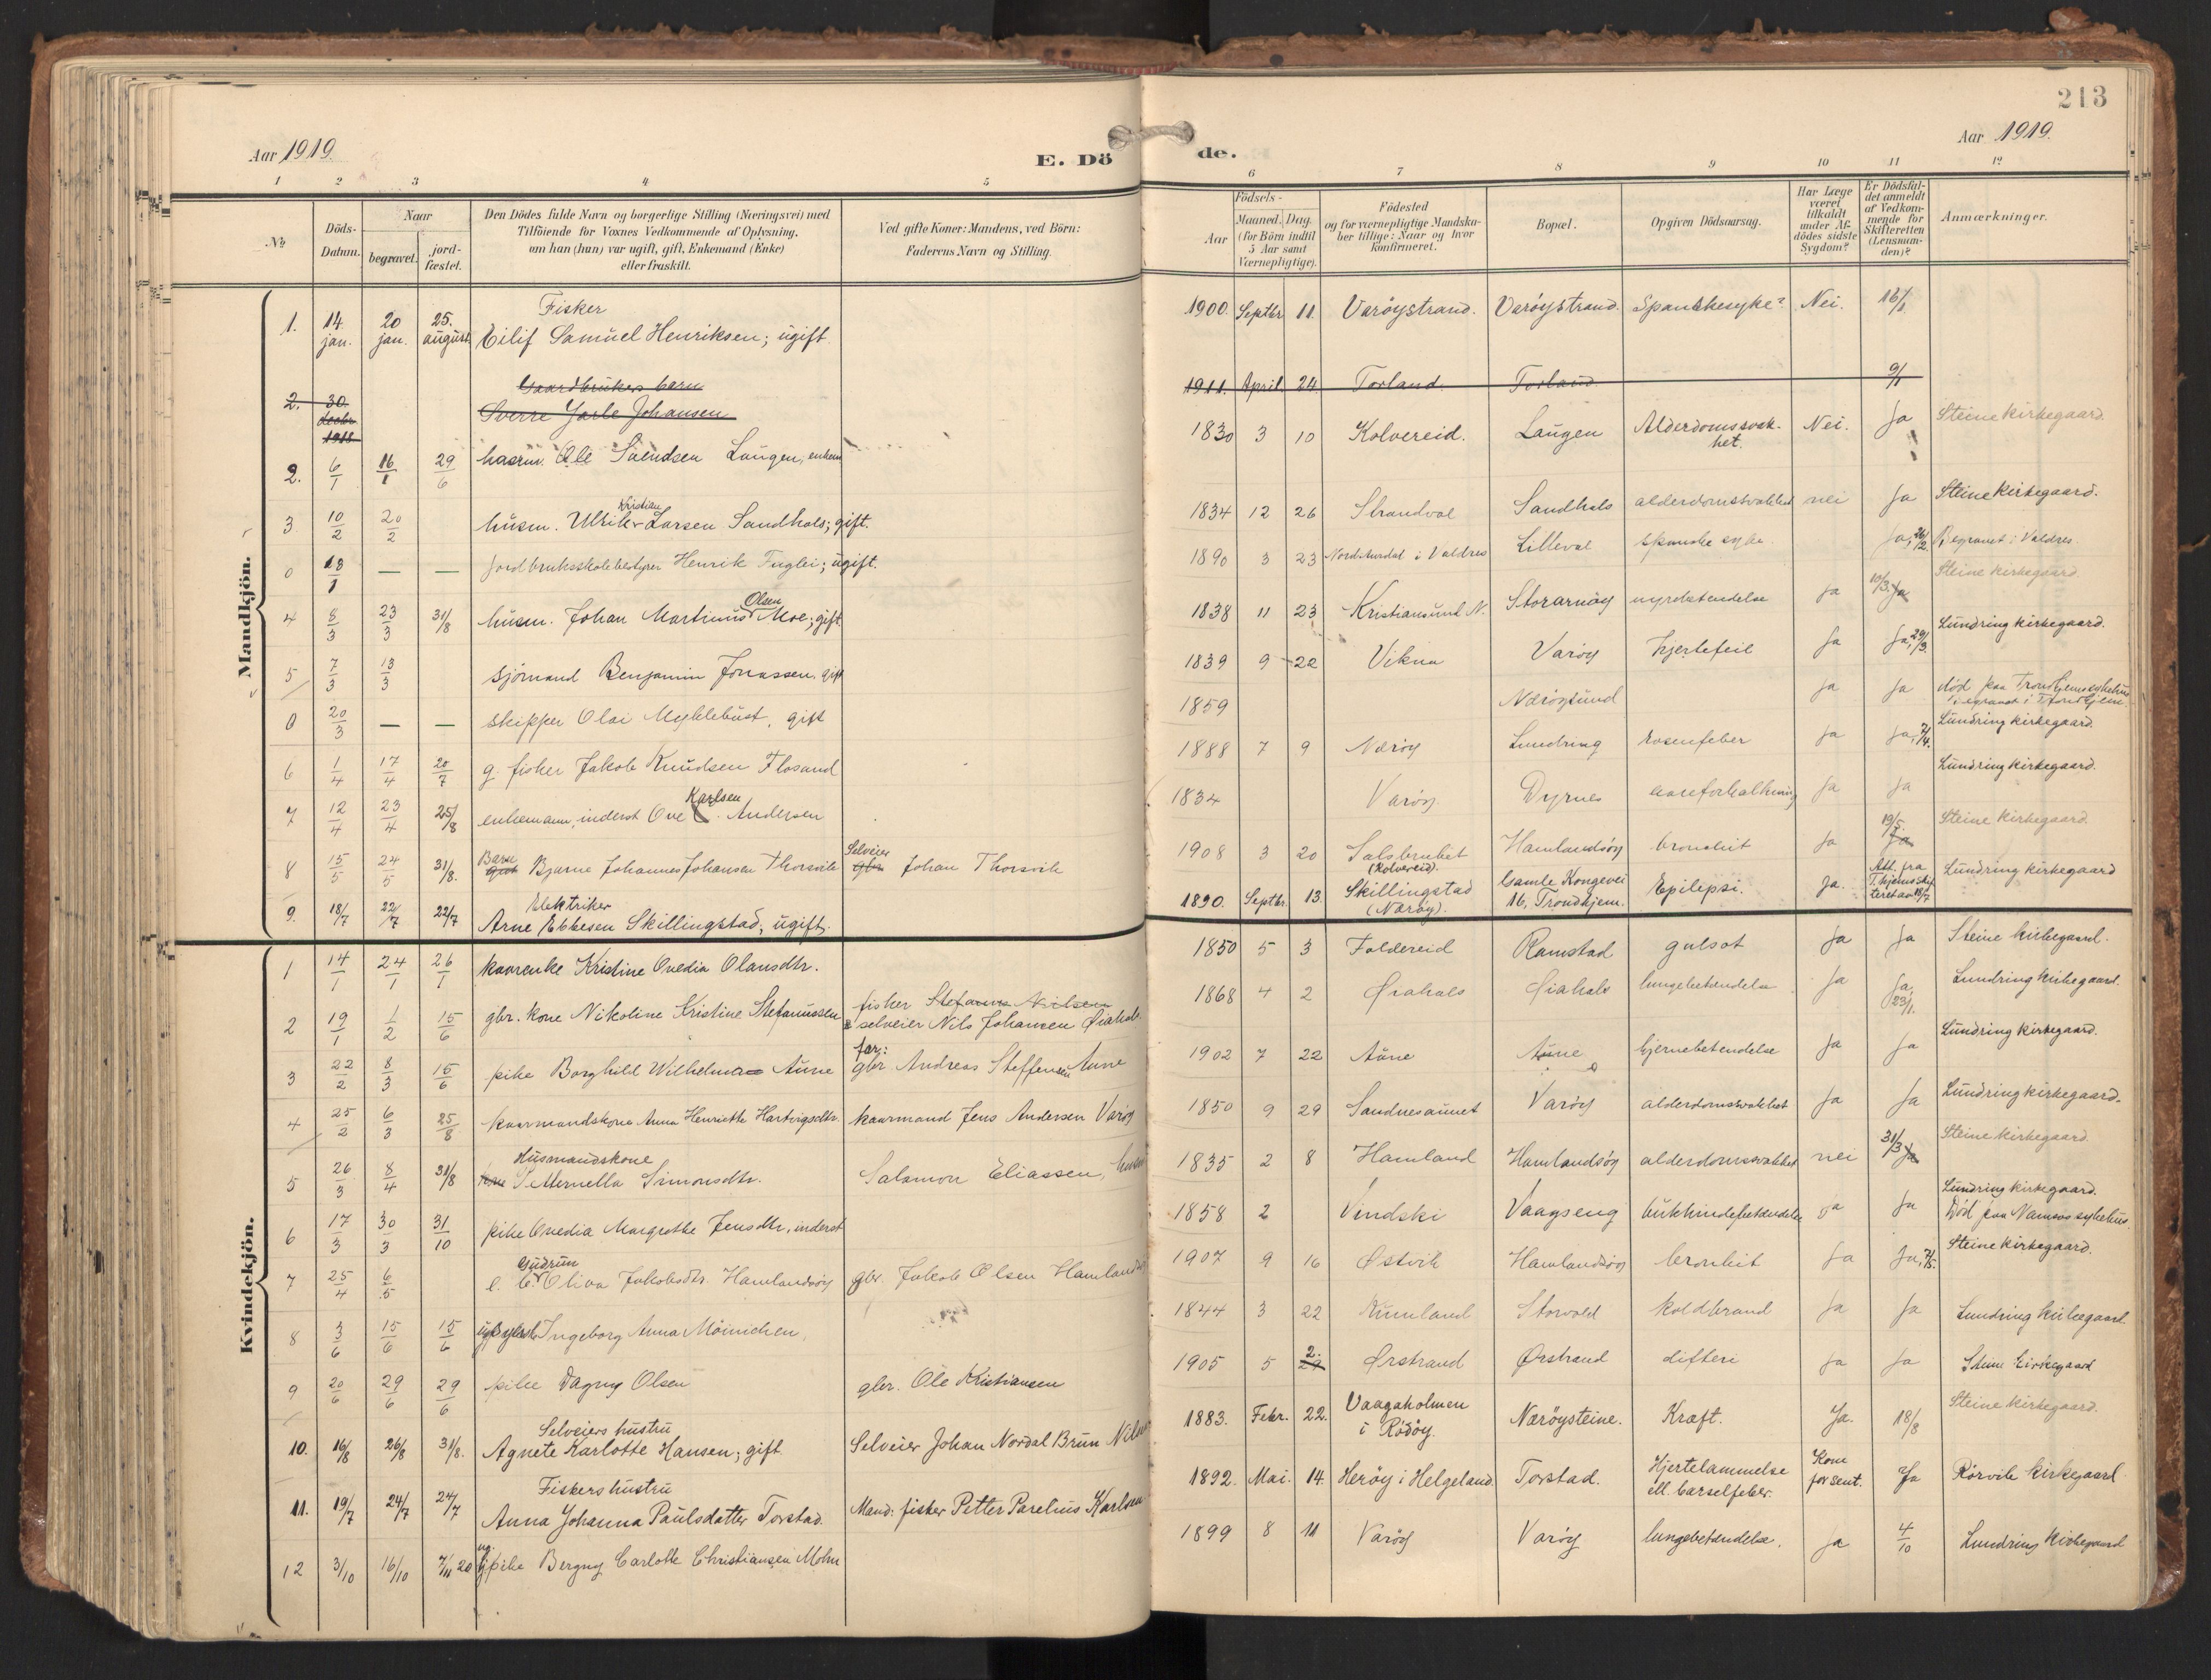 213
Aar 1919.
E. Döde.
Aar 1919.
1 2 3 4 5 6 7 8 9 10 11 12
No
Döds-Datum.
Naar
begravet.
jord-fæstet.
Den Dödes fulde Navn og borgerlige Stilling (Næringsvei) med
Tilföiende for Voxnes Vedkommende af Oplysning,
om han (hun) var ugift, gift, Enkemand (Enke)
eller fraskilt.
Ved gifte Koner: Mandens, ved Börn:
Faderens Navn og Stilling.
Födsels-
Aar
Maaned. Dag.
(for Börn indtil
5 Aar samt
Værnepligtige).
Födested
og for værnepligtige Mandska-
ber tillige: Naar og hvor
konfirmeret.
Bopæl.
Opgiven Dödsaarsag.
Har Læge
været
tilkaldt
under Af-
dödes sidste
Sygdom?
Er Dödsfal-
det anmeldt
af Vedkom-
mende for
Skifteretten
(Lensman-
den)?
Anmærkninger.
Mandkjön.
Fisker
1. 14 jan. 20 jan. 25. august Eilif Samuel Henriksen; ugift. 1900. Septbr 11. Varöystrand. Varöystrand. Spanskesyke? Nei. 16/1.
Gaardbrukers barn
2. 30. decbr. 1918 Sverre Jarle Johansen 1911. April 24. Torland. Torland. 9/1
2. 6/1 16/1 29/6 Ole Svendsen Laugen, enkem 1830 3 10 Kolvereid. Laugen Alderdomssvak-
het. Nei. Ja Steine kirkegaard.
3. 10/2 20/2 husm. Ulrik Kristian Larsen Sandhals; gift. 1834 12 26 Strandval Sandhals alderdomsvakhet nei Ja Steine kirkegaard.
0 13/1 — — jordbruksskolebestyrer Henrik Fuglei; ugift. 1890 3 23 Nord-Aurdal i Valdres Lilleval spanske syke. Ja, 26/2. Begravet i Valdres.
4 8/3 23/3 31/8 husm. Johan Martinus Olsen Moe; gift 1838 11 23 Kristiansund N. Storarnöy nyrebetendelse Ja 10/3. Ja Steine kirkegaard.
5 7/3 13/3 sjömand Benjamin Jonassen, gift 1839 9 22 Vikna Varöy hjertefeil Ja Ja, 29/3. Lundring kirkegaard.
0 20/3 — — skipper Olai Myklebust, gift 1859 Nærøysund Ja Ja død paa Trondhjems sykehus
begravet i Trondhjem.
6 1/4 17/4 20/7 g. fisker Jakob Knudsen Flosand 1888 7 9 Nærøy Lundring rosenfeber Ja Ja, 7/4. Lundring kirkegaard
7 12/4 23/4 25/8 enkemann, inderst Ove Karlsen Andersen 1834 Varöy. Dyrnes aareforkalkning Ja Ja Lundring kirkegaard.
8 15/5 24/5 31/8. Barn Bjarne Johannes Johansen Thorsvik Selveier gbr. Johan Thorsvik 1908 3 20 Salsbruket
(Kolvereid). Hamlandsöy bronkit Ja 19/5 Ja Steine kirkegaard.
Elektriker
9. 18/7 22/7 22/7 Arne Ebbesen Skillingstad; ugift. 1890. Septbr. 13. Skillingstad
(Nærøy). Gamle Kongevei
16, Trondhjem. Epilepsi. Ja. Att. fra
T.hjems skif
teret av 18/7 Lundring kirkegaard
Kvindekjön.
1 14/1 24/1 26/1 kaarenke Kristine Ovedia Olausdtr. 1850 5 3 Foldereid Ramstad gulsot Ja Ja Steine kirkegaard.
2 19/1 1/2 15/6 gbr. kone Nikoline Kristine Stefanussen fisker Stefanus Nilsen
selveier Nils Johansen Øiahals 1868 4 2 Øiahals Øiahals lungebetændelse Ja Ja, 23/1. Lundring kirkegaard.
3 22/2 8/3 15/6 pike Borghild Wilhelma Aune far:
gbr. Andreas Steffensen Aune 1902 7 22 Aune Aune hjernebetendelse Ja Ja Lundring kirkegaard.
4 25/2 6/3 25/8 kaarmandskone Anna Henriette Hartvigsdtr. kaarmand Jens Andersen Varöy 1850 9 29 Sandnesaunet Varöy alderdomsvakhet Ja Ja Lundring kirkegaard.
Husmandskone
5 26/3 8/4 31/8 kone Petternella Simonsdtr. Salamon Eliassen, husm 1835 2 8 Hamland Hamlandsöy alderdomsvakhet nei 31/3 Ja Steine kirkegaard.
6 17/3 30/3 31/10 pike Ovedia Margrethe Jensdtr, inderst 1858 2 Vindski Vaagseng bukhindebetændelse Ja Ja Lundring kirkegaard.
Död paa Namsos sykehus.
7 25/4 6/5 Gudrun Oliva Jakobsdtr. Hamlandsöy gbr. Jakob Olsen Hamlandsöy 1907 9 16 Østvik Hamlandsöy bronkit Ja Ja, 7/5. Steine kirkegaard.
8 3/6 15/6 15/6 Ingeborg Anna Möinichen, 1844 3 22 Kumland Storvold koldbrand Ja Ja Lundring kirkegaard.
9 20/6 29/6 29/6 pike Dagny Olsen gbr. Ole Kristiansen 1905 5 2. Ørstrand Ørstrand difteri Ja Ja Steine kirkegaard
Selveiers hustru
10. 16/8 26/8 31/8. Agnete Karlotte Hansen; gift Selveier Johan Nordal Brun Nilsen 1883. Febr. 22. Vaagaholmen
i Rödöy. Nærøysteine. Kræft. Ja. 18/8 Steine kirkegaard.
Fiskers hustru
11. 19/7 24/7 24/7 Anna Johanna Paulsdatter Torstad. Mand: fisker Petter Parelius Karlsen 1892. Mai. 14. Herøy i Helgeland. Torstad. Hjertelammelse
ell. barselfeber. Kom
for sent. Ja Rörvik kirkegaard
12 3/10 16/10 7/11 20 ug. pike Bergny Carlotte Christiansen Mohn 1899 8 11 Varöy Varöy lungebetændelse. Ja 4/10 Lundring kirkegaard